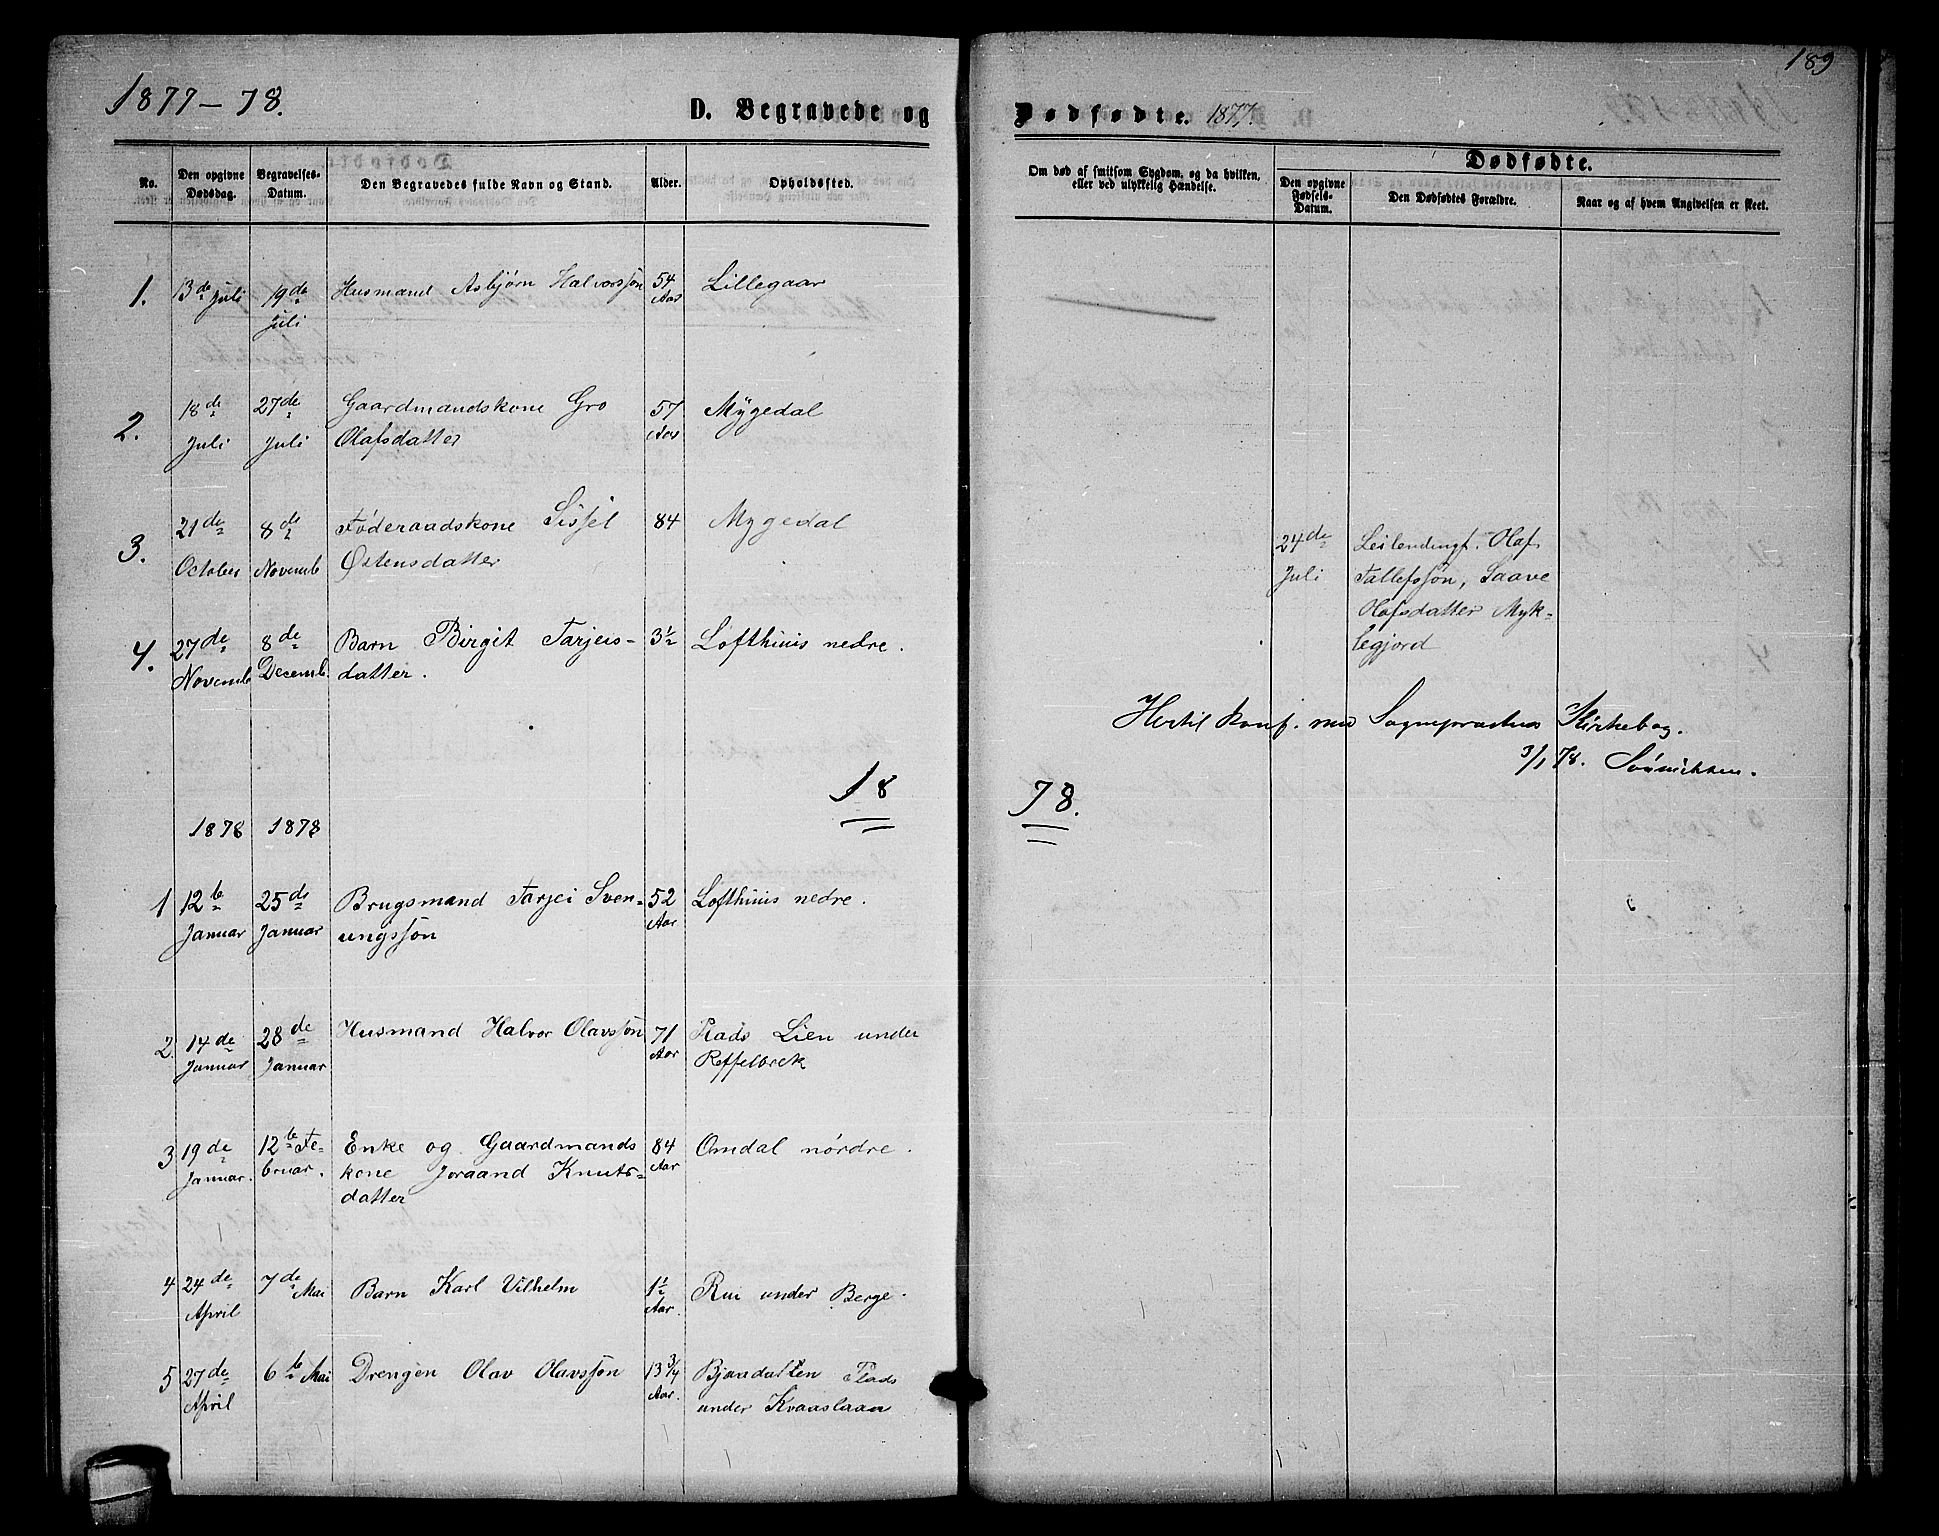 189
1877-78.
D. Begravede og Dødfødte. 1877.
No.
Den opgivne Dødsdag.
Begravelses-Datum.
Den Begravedes fulde Navn og Stand.
Alder.
Opholdssted.
Om død af smitsom Sygdom, og da hvilken, eller ved ulykkelig Hændelse.
Dødfødte.
Den opgivne Fødsels-Datum.
Den Dødfødtes Forældre.
Naar og af hvem Angivelsen er skeet.
1. 13de Juli 19de Husmand Asbjørn Halvorssøn 54 Lillegaar
Juli Aar
2. 18de 27de Gaardmandskone Gro 57 Mygedal
Juli Juli Olafsdatter Aar
3. 21de 8de Føderaadskone Sissel 84 Mygedal
October Novemb Østensdatter
24de Leilendingf. Olaf
Juli Tallefssøn, Saave
Olafsdatter Myk-
legjord
4. 27de 8de Barn Birgit Tarjeis- 3½ Lofthuus nedre.
Novemb Decemb. datter.
Hertil konf. med Sognepræstens Kirkebog.
3/1 78.
18 78.
1878 1878
1 12te 25de Brugsmand Tarjei Sven- 52 Lofthuus nedre.
Januar Januar ungssøn Aar
2. 14de 28de Husmand Halvor Olavssøn 71 Plads Lien under
Januar Januar Aar Reffelbræk
3 19de 12te Fe- Enke og Gaardmands 84 Omdal nørdre.
Januar. bruar. kone Joraand Knuts- Aar
datter
4 24de 7de Mai Barn Karl Vilhelm 1½ Rui under Berge.
April Aar.
5 27de 6te Mai Drengen Olav Olavssøn 13 3/4 Bjaadalten Plads
April Aar. under Kvaaslaan